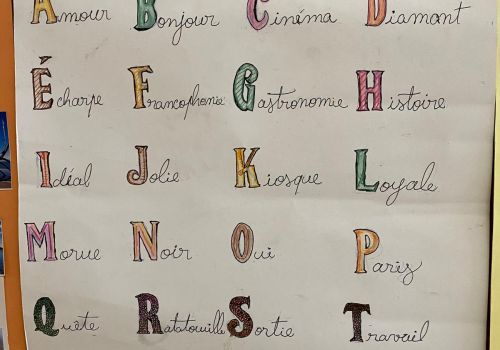 Amour Bonjour Cinéma Diamant
Écharpe Francophonie Gastronomie Histoire
Idéal Jolie Kiosque Loyale
Morue Noir Oui Paris
Quête Ratatouille Sortie Travail